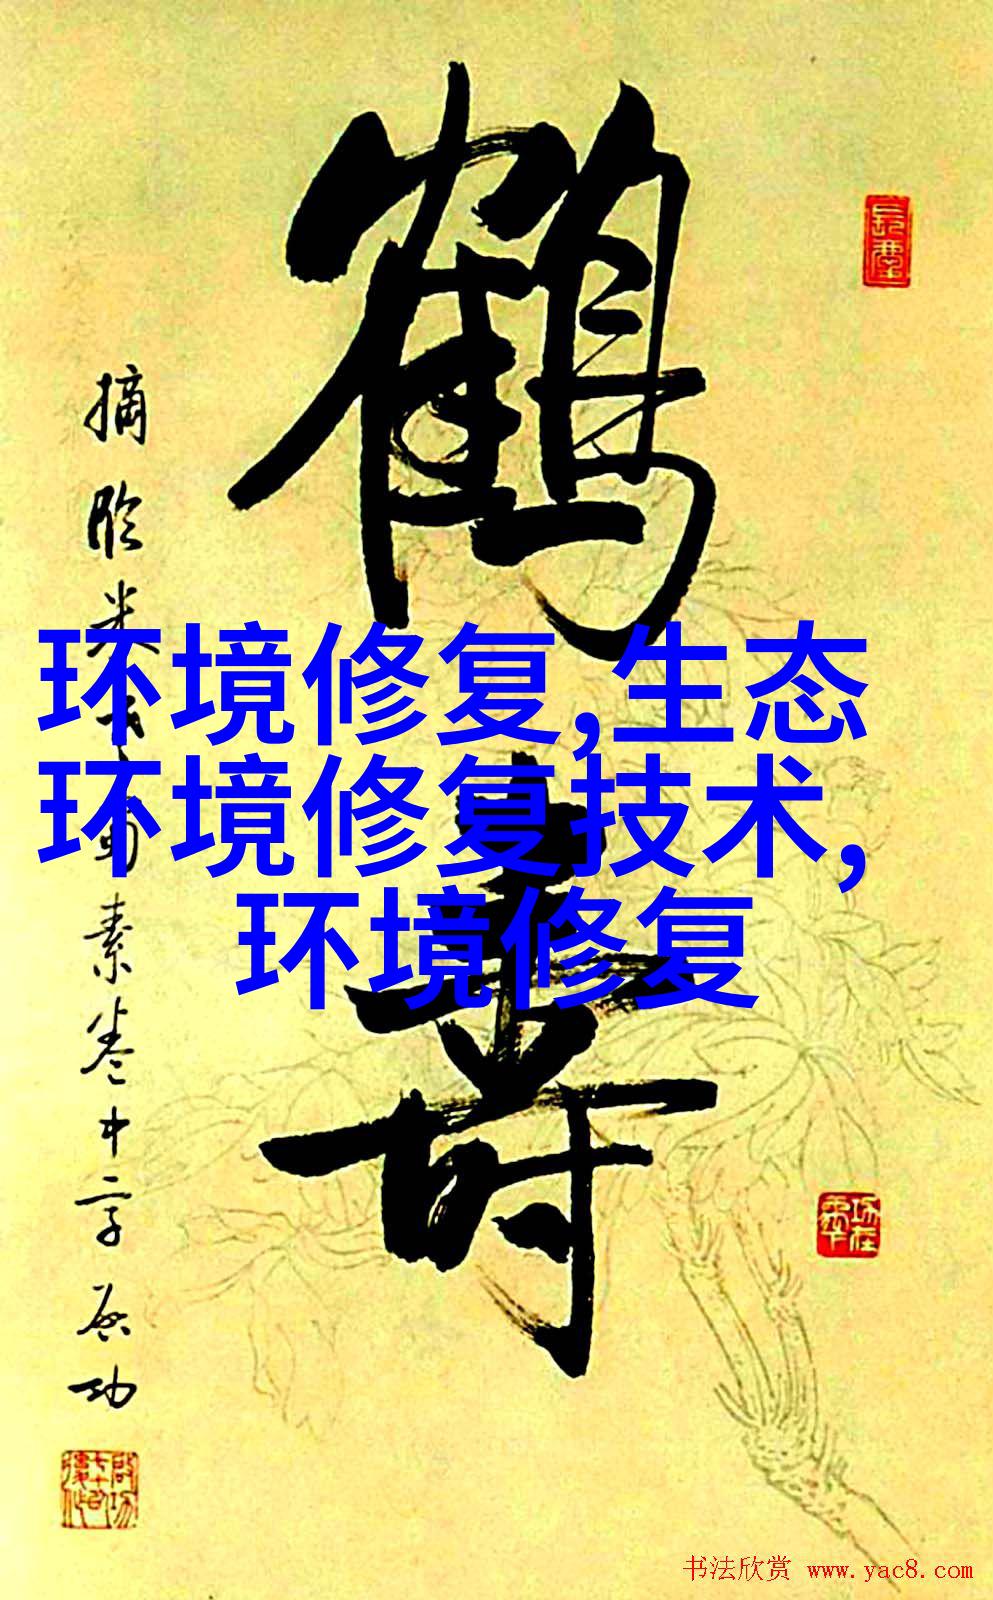 鹤寿
环境修复,生态
环境修复技术,
环境修复
摘临米 蜀素卷中字 启功
书法欣赏 www.yac8.com